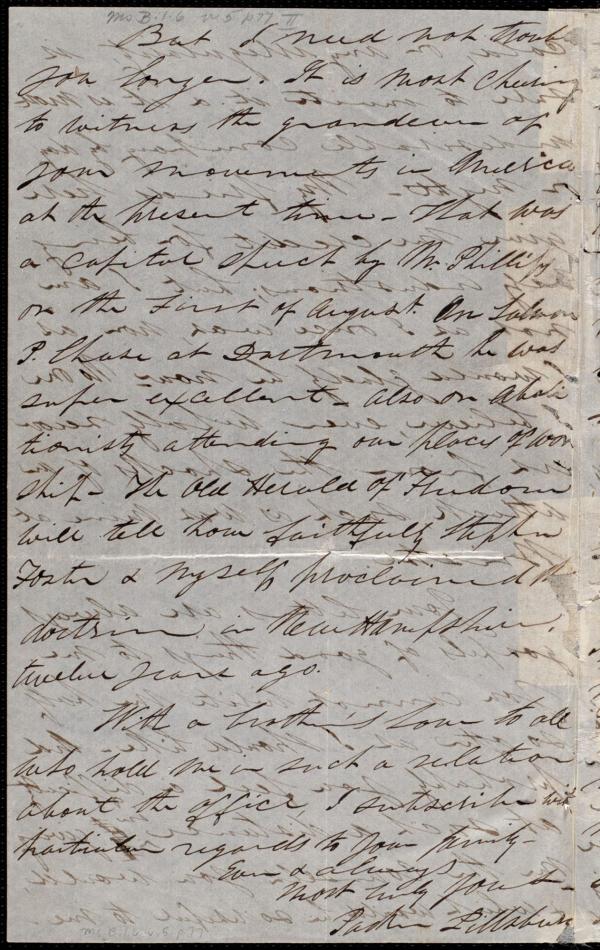 Ms. B.1.6 v.5 p77 II
But I need not troub
you longer. It is most cheering
to witness the grandeur of
your movements in America
at the present time - That was
a capital speech by Mr. Phillips
on the First of August. On Salmon
P. Chase at Dartmouth he was
super excellent - also on Aboli
tionists attending our places of wor
ship - The Old Herald of Freedom
will tell how faithfully Stephen
Foster & myself proclaimed the
doctrine in New Hampshire,
twelve years ago.
With a brother's love to all
who hold me in such a relation
about the office I subscribe with
particular regards to your family -
Ever & always
Most truly yours -
Parker Pillsbury
Ms. B.1.6 v.5 p77